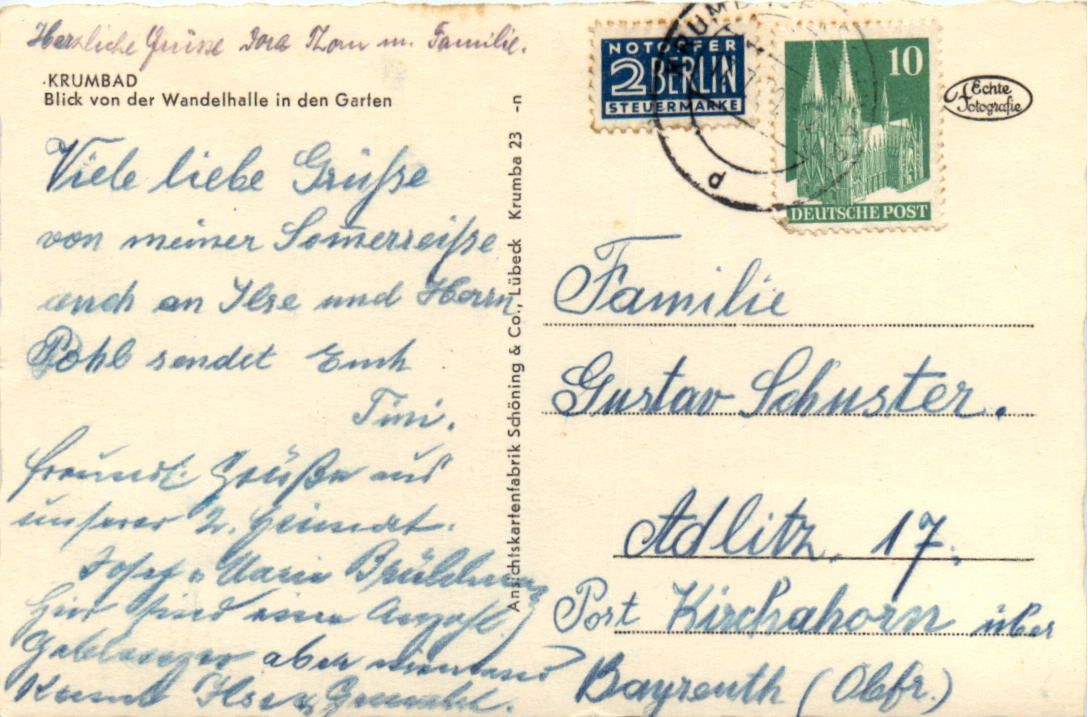 Herzliche Grüsse Dora Thorn m. Familie.
KRUMBAD
Blick von der Wandelhalle in den Garten
Viele liebe Grüße
von meiner Som̄erreiße
auch an Ilse und Herrn
Pohl sendet Euch
Tini.
freundl. Grüße aus
unserer 2. Heimat.
Josef u. Marie
Hier sind eine Anzahl
Gablonzer aber niemand
Ilse
Ansichtskartenfabrik Schöning & Co., Lübeck Krumba 23 -n
NOTOPFER
2 BERLIN
STEUERMARKE
KRUMBACH
10
DEUTSCHE POST
Echte
Fotografie
Familie
Gustav Schuster.
Adlitz, 17.
Post Kirchahorn über
Bayreuth (Obfr.)